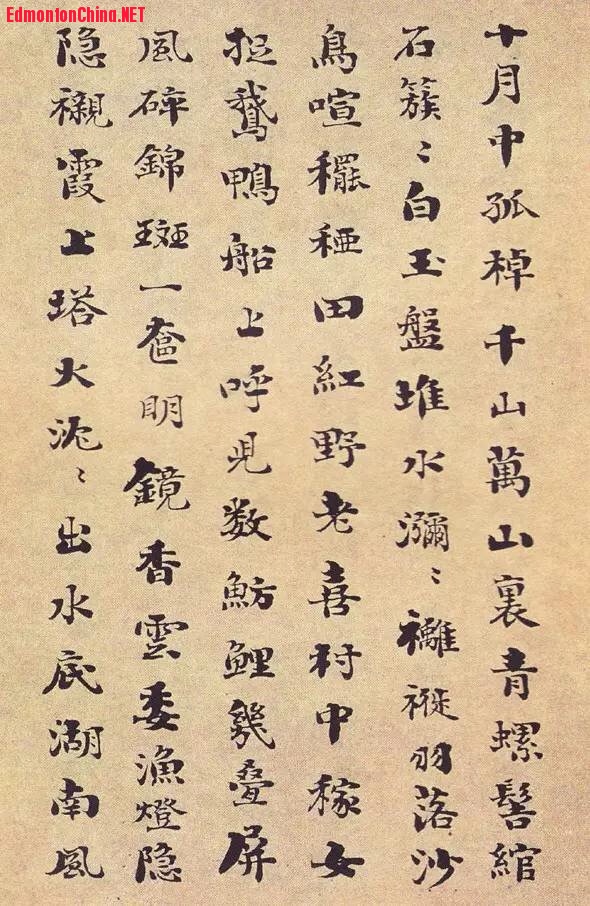 EdmontonChina.NET
十月中孤棹千山萬山裏青螺髻綰
石簇〻白玉盤堆水瀰〻褷羽落沙
鳥喧䆉稏田紅野老喜村中稼女
捉鵝鴨船上呼児数魴鯉幾疊屏
風碎錦斑一奩明鏡香雲委漁燈隐
隐襯霞上塔火〻出水底湖南風